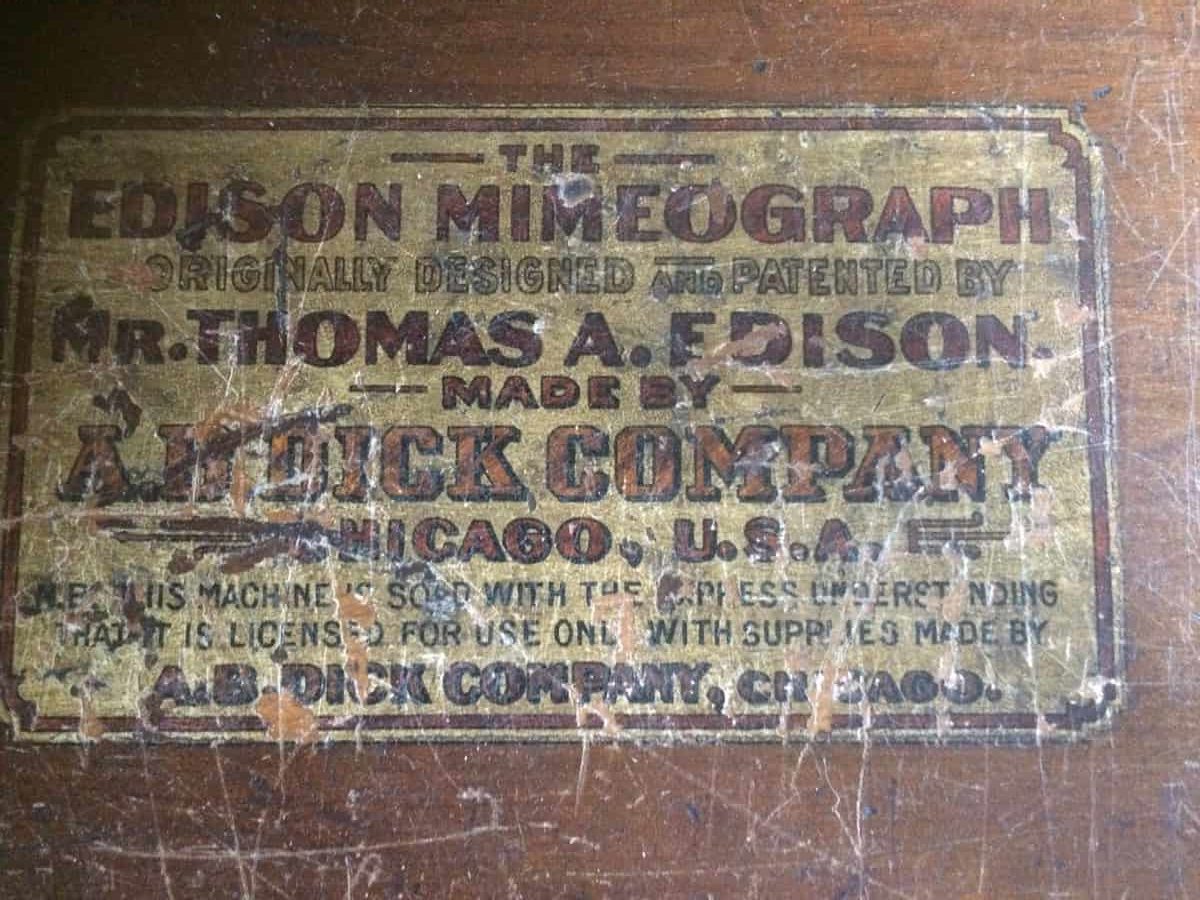 THE
EDISON MIMEOGRAPH
ORIGINALLY DESIGNED AND PATENTED BY
MR. THOMAS A. EDISON.
MADE BY
A.B. DICK COMPANY
CHICAGO, U.S.A.
N.B. THIS MACHINE IS SOLD WITH THE EXPRESS UNDERSTANDING
THAT IT IS LICENSED FOR USE ONLY WITH SUPPLIES MADE BY
A.B. DICK COMPANY, CHICAGO.